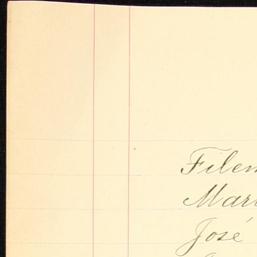 Filem
Mari
José